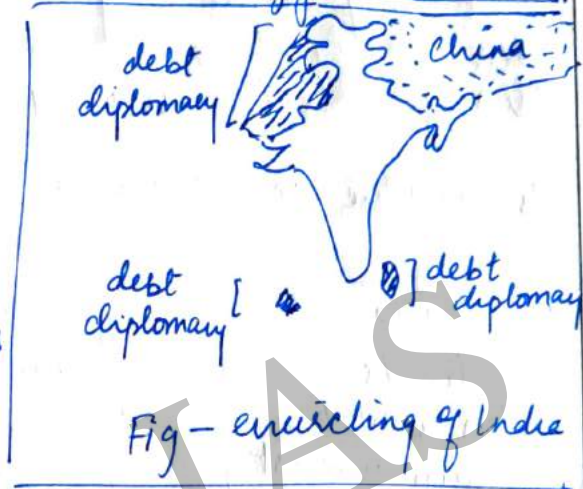 China
debt
diplomacy
debt
diplomacy
debt
diplomacy
Fig - encircling of India
IAS